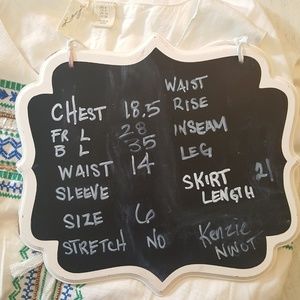 CHEST 18.5
FR L 28
B L 35
WAIST 14
SLEEVE
SIZE 6
STRETCH NO
WAIST
RISE
INSEAM
LEG
SKIRT
LENGTH 21
Kenzie
NWOT